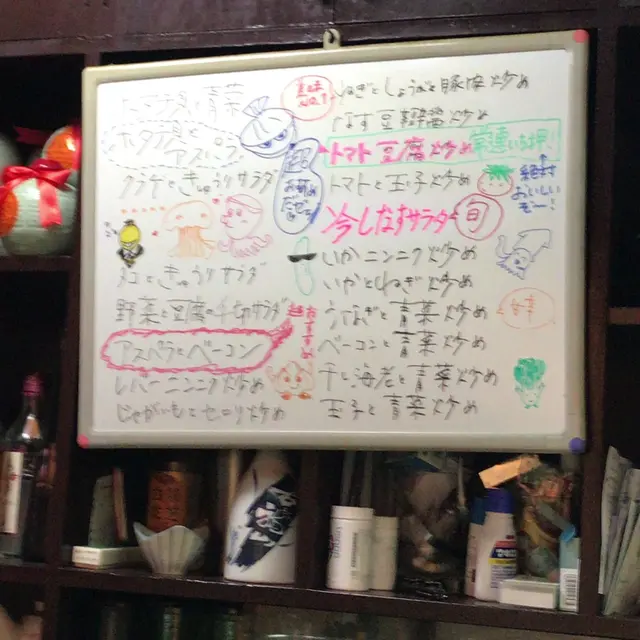 ホタテ貝と
アスパラ
クラゲときゅうりサラダ
タコときゅうりサラダ
野菜と豆腐の千切サラダ
アスパラとベーコン
レバーニンニク炒め
じゃがいもとセロリ炒め
ねぎとしょうがと豚肉炒め
なす豆鼓醤炒め
トマト豆腐炒め
常連いち押!
トマトと玉子炒め
絶対
おいしい
ぞー!
冷しなすサラダ
旬
いかニンニク炒め
いかとねぎ炒め
うなぎと青菜炒め
ベーコンと青菜炒め
干し海老と青菜炒め
玉子と青菜炒め
超おすすめ